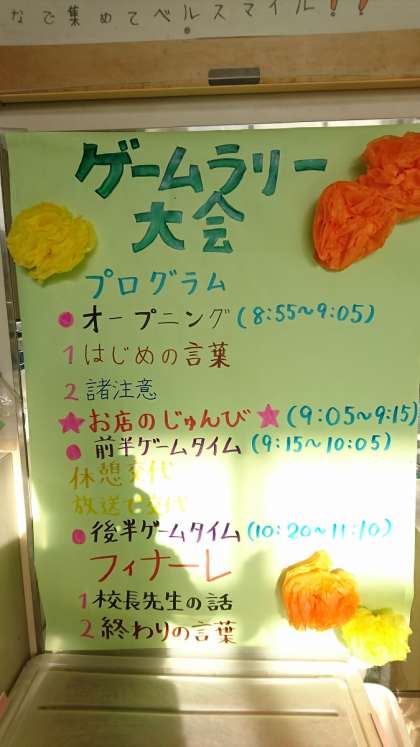 なで集めてベルスマイル!!
ゲームラリー
大会
プログラム
●オープニング(8:55~9:05)
1はじめの言葉
2諸注意
★お店のじゅんび★(9:05~9:15)
●前半ゲームタイム(9:15~10:05)
休憩交代
放送で交代
●後半ゲームタイム(10:20~11:10)
フィナーレ
1校長先生の話
2終わりの言葉